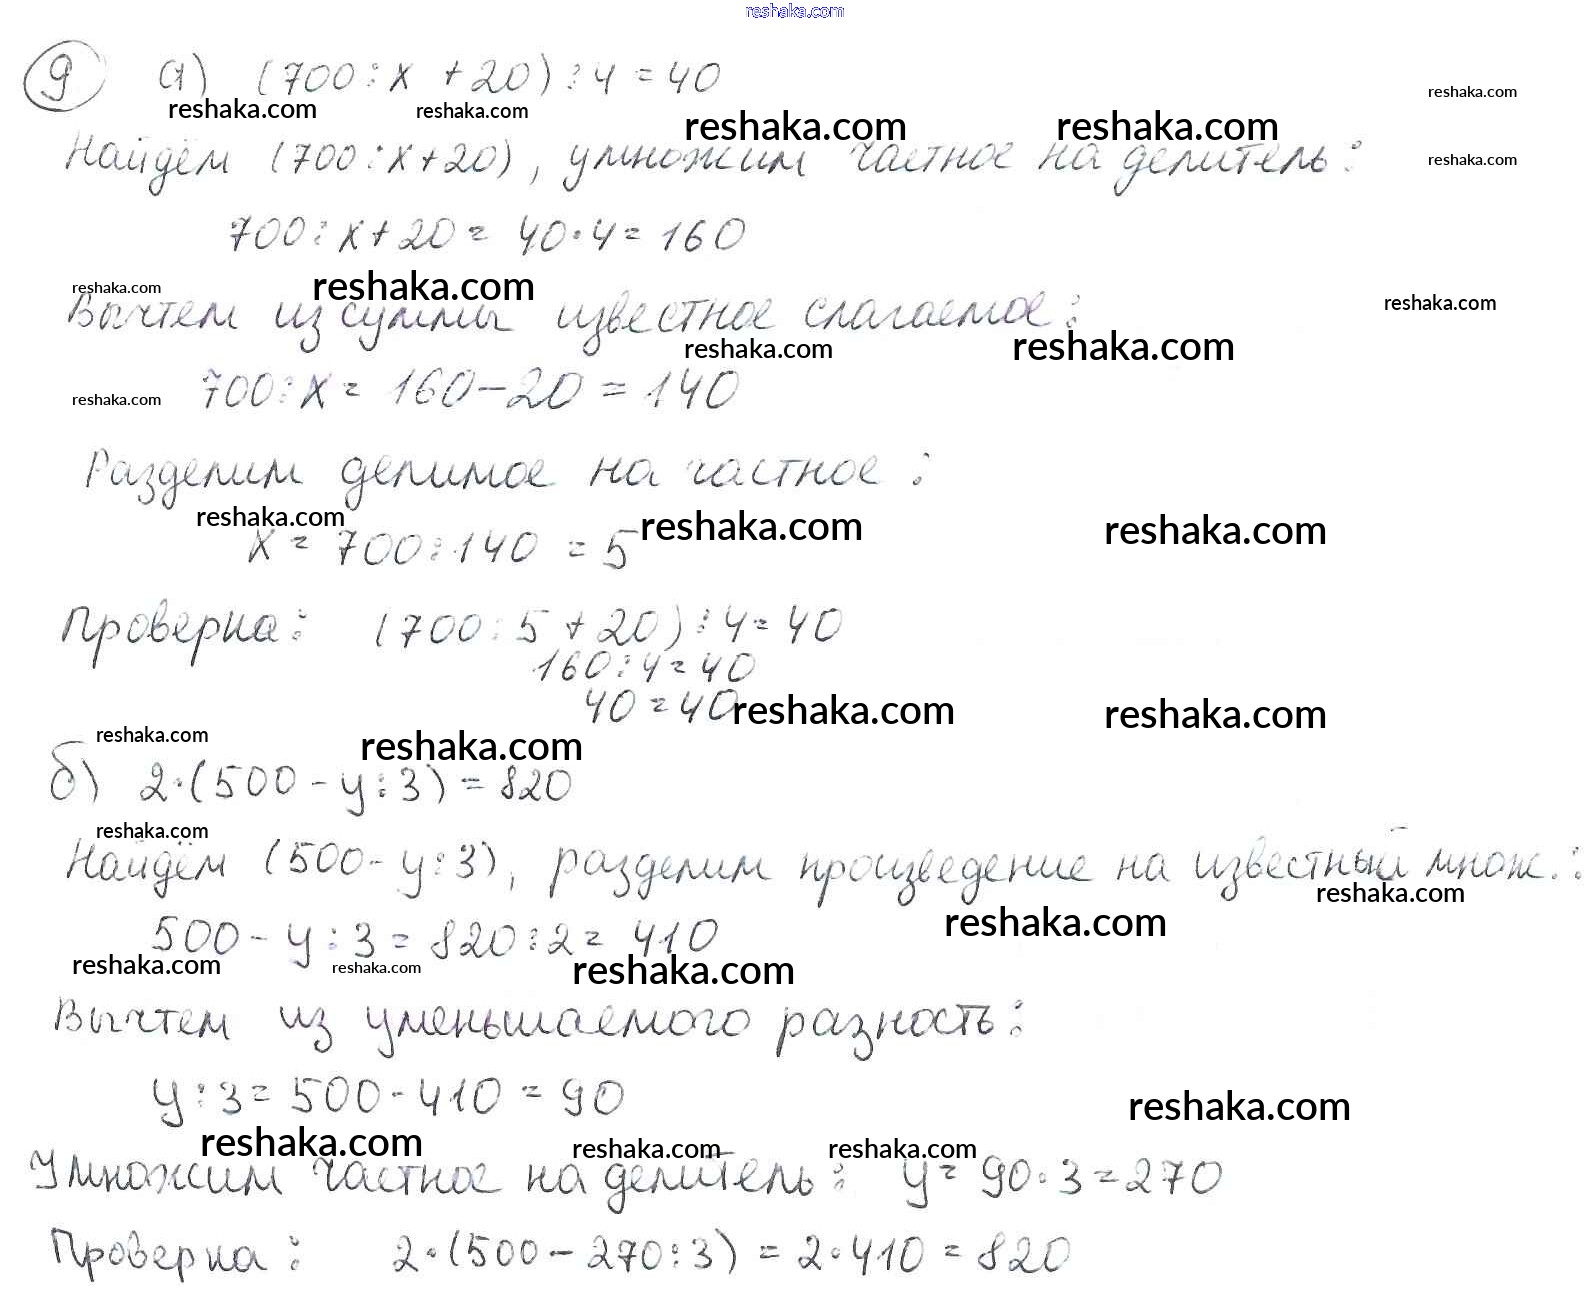 reshaka.com
9 а) (700 : x + 20) : 4 = 40
reshaka.com reshaka.com reshaka.com reshaka.com reshaka.com
Найдём (700 : x + 20), умножим частное на делитель:
reshaka.com
700 : x + 20 = 40 · 4 = 160
reshaka.com reshaka.com reshaka.com
Вычтем из суммы известное слагаемое:
reshaka.com reshaka.com
700 : x = 160 - 20 = 140
reshaka.com
Разделим делимое на частное:
reshaka.com reshaka.com reshaka.com
x = 700 : 140 = 5
Проверка: (700 : 5 + 20) : 4 = 40
160 : 4 = 40
40 = 40
reshaka.com reshaka.com
reshaka.com reshaka.com
б) 2 · (500 - y : 3) = 820
reshaka.com
Найдём (500 - y : 3), разделим произведение на известный множ.:
reshaka.com
reshaka.com
500 - y : 3 = 820 : 2 = 410
reshaka.com reshaka.com reshaka.com
Вычтем из уменьшаемого разность:
y : 3 = 500 - 410 = 90
reshaka.com
reshaka.com reshaka.com reshaka.com
Умножим частное на делитель: y = 90 · 3 = 270
Проверка: 2 · (500 - 270 : 3) = 2 · 410 = 820